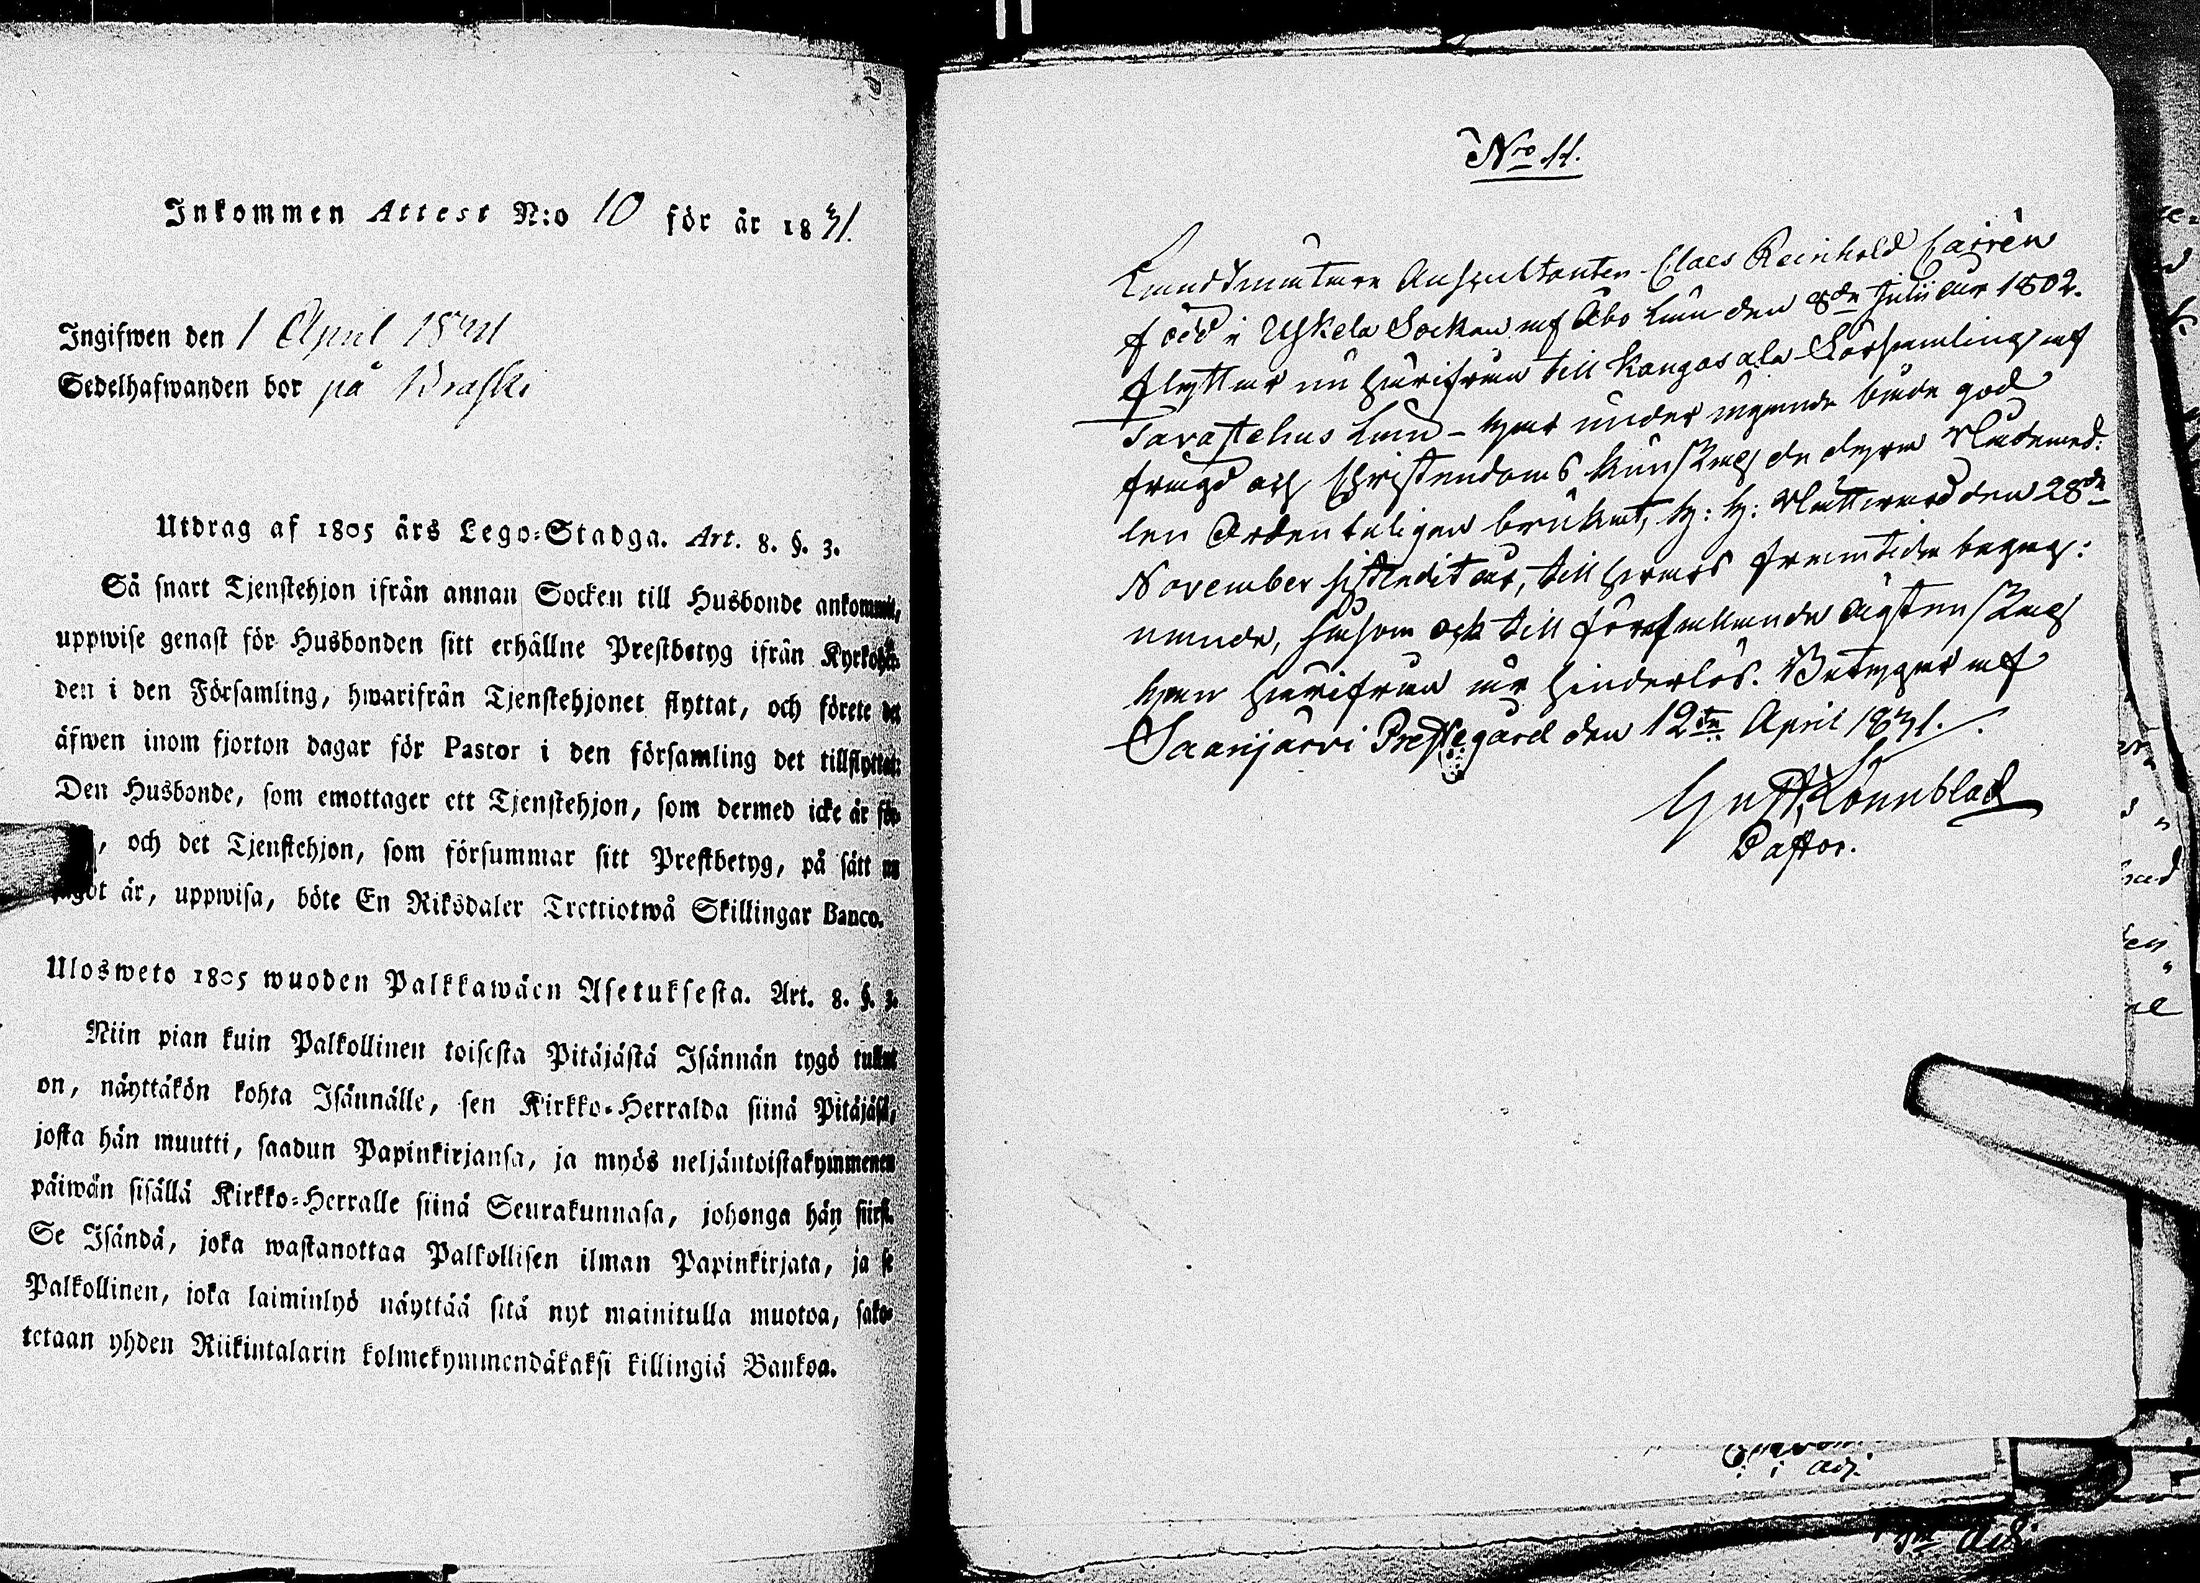 Inkommen Attest N:o 10 för år 1831.
Ingifwen den 1 April 1831
Sedelhafwanden bor på
Utdrag af 1805 års Lego-Stadga. Art. 8. §. 3.
Så snart Tjenstehjon ifrån annan Socken till Husbonde ankommit,
uppwise genast för Husbonden sitt erhållne Prestbetyg ifrån
den i den Församling, hwarifrån Tjenstehjonet flyttat, och förete det
äfwen inom fjorton dagar för Pastor i den församling det
Den Husbonde, som emottager ett Tjenstehjon, som dermed icke är
, och det Tjenstehjon, som försummar sitt Prestbetyg, på sätt nu
sagdt är, uppwisa, böte En Riksdaler Trettiotwå Skillingar Banco.
Ulosweto 1805 wuoden Palkkawäen Asetuksesta. Art. 8. §. 3.
Niin pian kuin Palkollinen toisesta Pitäjästä Isännän tygö tullut
on, näyttäkön kohta Isännälle, sen Kirkko-Herralda siinä Pitäjäsä,
josta hän muutti, saadun Papinkirjansa, ja myös neljäntoistakymmenen
päiwän sisällä Kirkko-Herralle siinä Seurakunnasa, johonga hän siirt.
Se Isändä, joka wastanottaa Palkollisen ilman Papinkirjata, ja se
Palkollinen, joka laiminlyö näyttää sitä nyt mainitulla muotoa, sako-
tetaan yhden Riikintalarin kolmekymmendäkaksi killingiä Bankoa.
Nro 11.
Landtmäterie Auscultanten Claes Reinhold Cairén
född i Uskela Socken af Åbo Län den 8de Julii år 1802.
flyttar nu härifrån till Kangasala Församling af
Tavastehus Län - har under ägande både god
frägd och Christendoms kunskap de dyra Nådemed:
len Ordenteligen brukat, H: H: Nattvard den 28de
November sistledit år, till hvars framtida begag:
nande, såsom ock till förefallande ägtenskap
han härifrån är hinderlös. Betygar af
Saarijärvi Prestegård den 12te April 1831.
Gust. Lönnblad
Pastor.